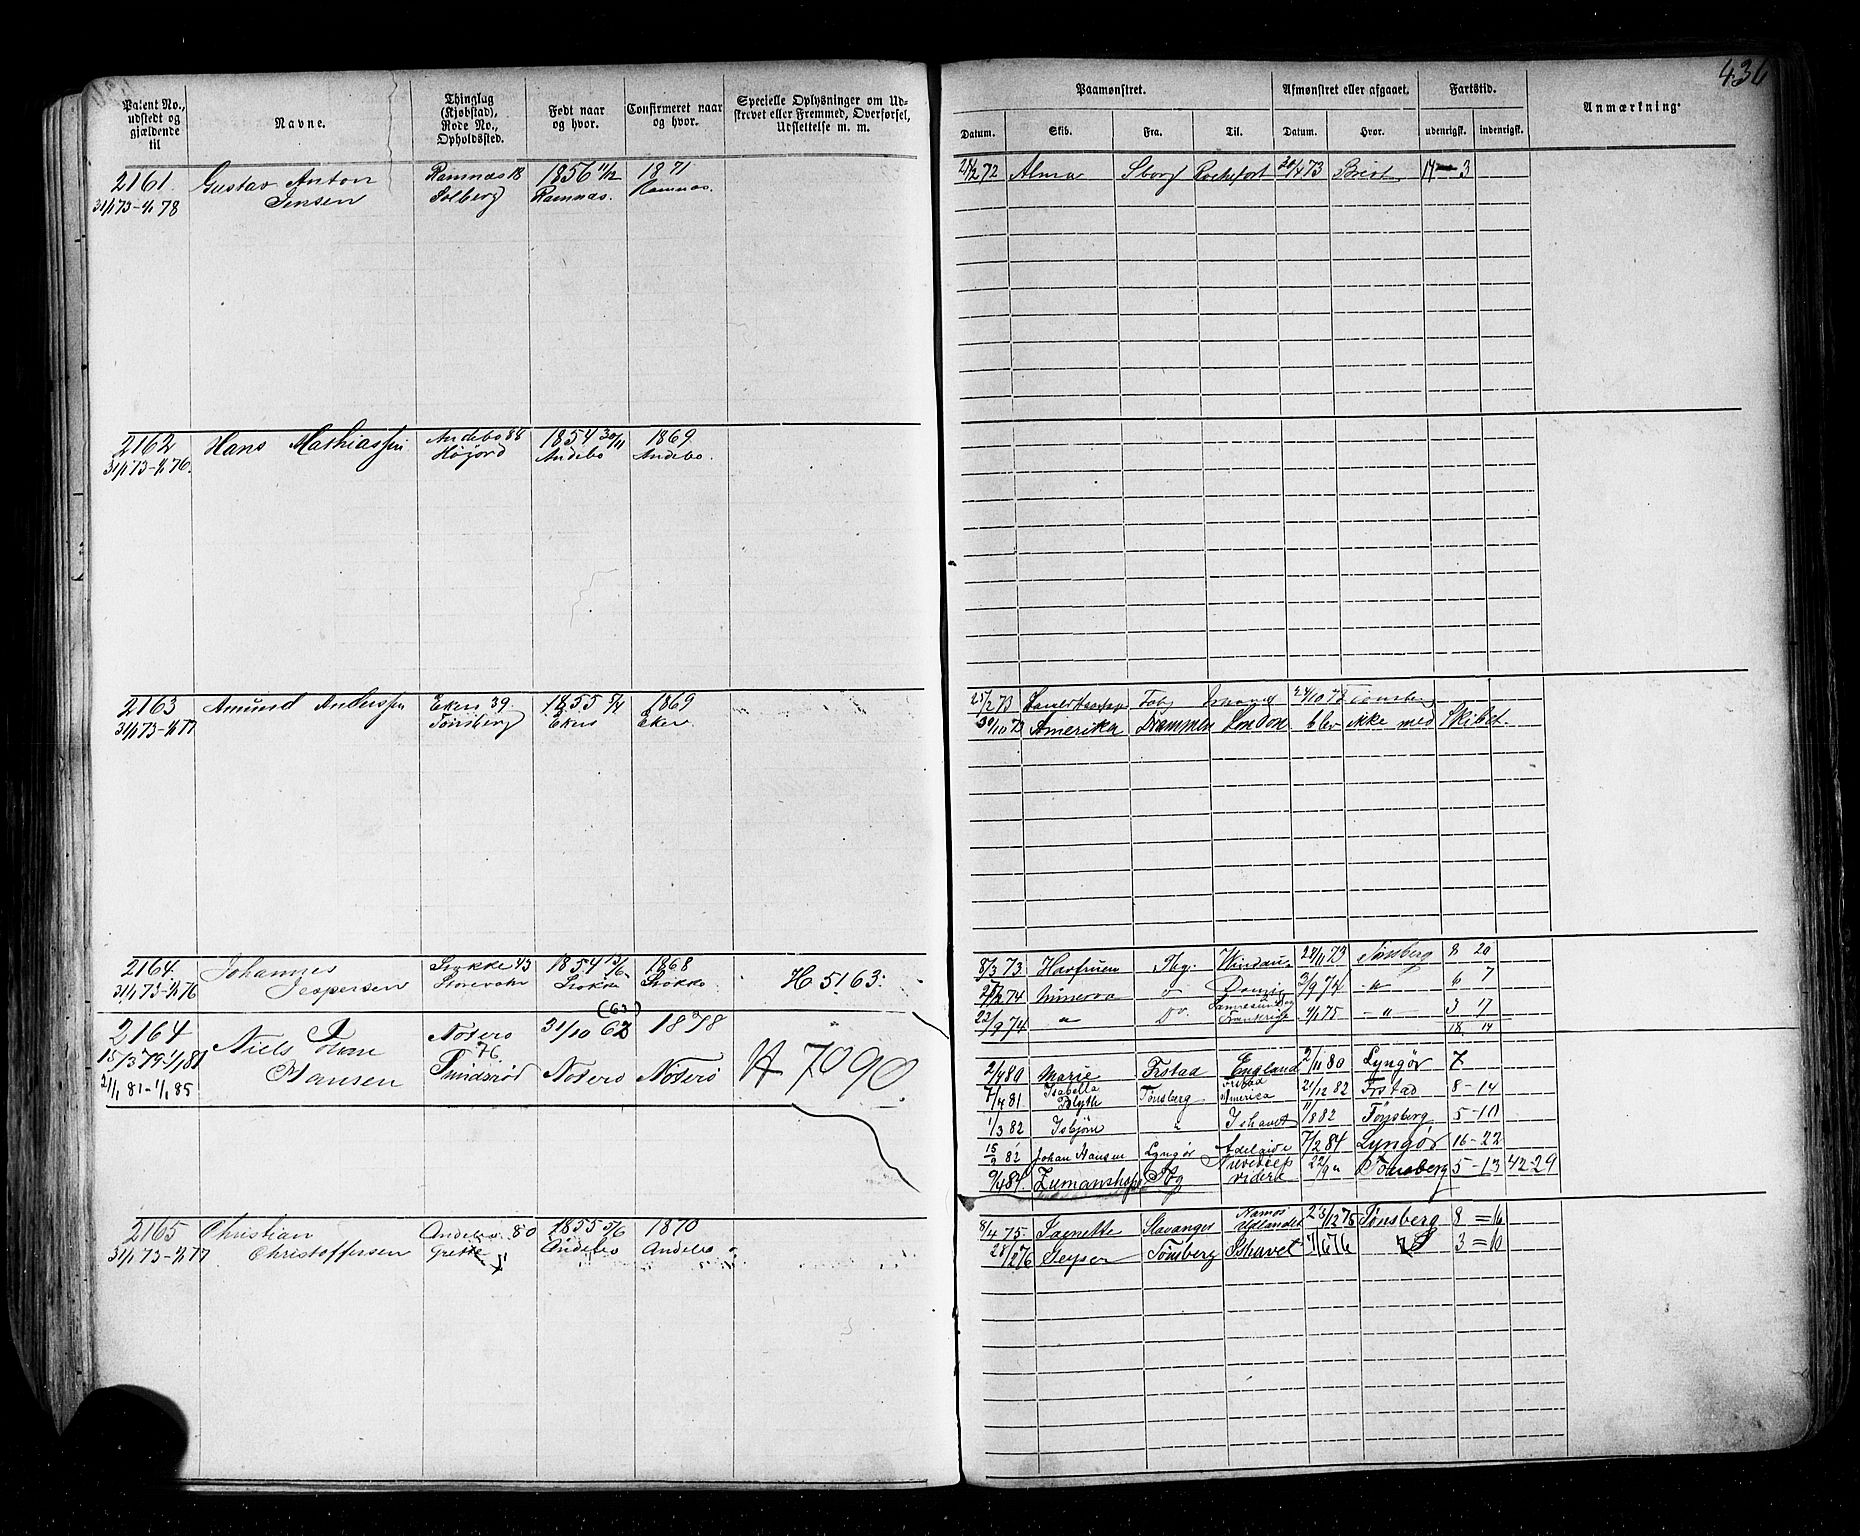 436
Patent No., udstedt og gjældende til
Navne.
Thinglag (Kjøbstad), Rode No., Opholdssted.
Født naar og hvor.
Confirmeret naar og hvor.
Specielle Oplysninger om Udskrevet eller Fremmed, Overførsel, Udslettelse m. m.
Paamønstret.
Afmønstret eller afgaaet.
Fartstid.
Anmærkning.
Datum. Skib. Fra. Til. Datum. Hvor. udenrigsk. indenrigsk.
2161. Gustav Anton Ramnæs 18 1856 11/12 1871
31/1 73-1/1 78 Jensen Solberg Ramnæs. Ramnæs.
72 Alma Sborg Rochefort 73 Brest 3
2162 Hans Mathiassen Andebo 88 1854 30/11 1869
31/1 73-1/1 76. Høijord Andebo Andebo.
2163 Amund Anderssen Eker 39. 1855 1869
31/1 73-1/1 77 Tønsberg Eker Eker
25/2 73 24/10 73 Tønsberg
30/10 73 Amerika Drammen London blev ikke med Skibet.
2164 Johannes Stokke 43 1854 1868
31/1 73-1/1 76 Jespersen Stokke Stokke H. 5163.
8/3 73 Havfruen Tbg. Windau 73 Tønsberg 8 20
74 Minerva Danzig 3/9 74 - " - 6 7
22/9 74 " Do. Frankrig 75 - " - 3 17
18 14
2164 Niels Nøterø 31/10 62 (62) 1878
15/3 79-1/1 81 Hansen 76. Nøterø Nøterø H 7090.
2/1 81-1/1 85
2/4 80 Marie Frstad England 2/11 80 Lyngør 7
/4 81 Isabella Blyth Tønsberg America 21/12 82 Frstad 8-14
1/3 82 Isbjørn " Ishavet 11/8 82 Tønsberg 5-10
15/9 82 Johan Hansen Lyngør Adelaide 7/2 84 Lyngør 16-22
9/4 84 Tbg Tønsberg 5-13 42-29
2165 Christian Andebo 80 1855 5/6 1870
31/1 73-1/1 77 Christoffersen Grette Andebo Andebo
8/4 75. Stavanger Namsos Udlandet 23/12 75 Tønsberg 8=16
28/2 76 Geyser Tønsberg Ishavet 7/6 76 3=10